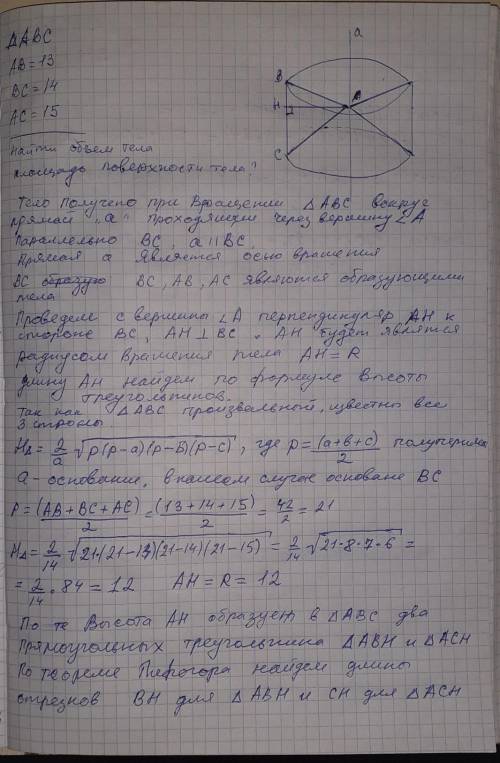 ΔABC
AB=13
BC=14
AC=15
Найти объем тела
площадь поверхности тела?
a
B
A
H
C
Тело получено при вращении ΔABC вокруг
прямой "a" проходящий через вершину ∠A
параллельно BC, a∥BC.
Прямая a является осью вращения
BC, AB, AC являются образующими
тела
Проведем с вершины ∠A перпендикуляр AH к
стороне BC, AH⊥BC. AH будет является
радиусом вращения тела AH=R
длину AH найдем по формуле высоты
треугольников.
Так как ΔABC произвольной, известны все
3 стороны
H△ = 2/a √p(p-a)(p-b)(p-c), где p=(a+b+c)/2 полупериметр
a - основание, в нашем случае основание BC
P = (AB+BC+AC)/2 = (13+14+15)/2 = 42/2 = 21
H△ = 2/14 √21(21-13)(21-14)(21-15) = 2/14 √21·8·7·6 =
= 2/14 · 84 = 12 AH=R=12
По те Высота AH образует в ΔABC два
прямоугольных треугольника ΔABH и ΔACH
По теореме Пифагора найдем длины
отрезков BH для ΔABH и CH для ΔACH